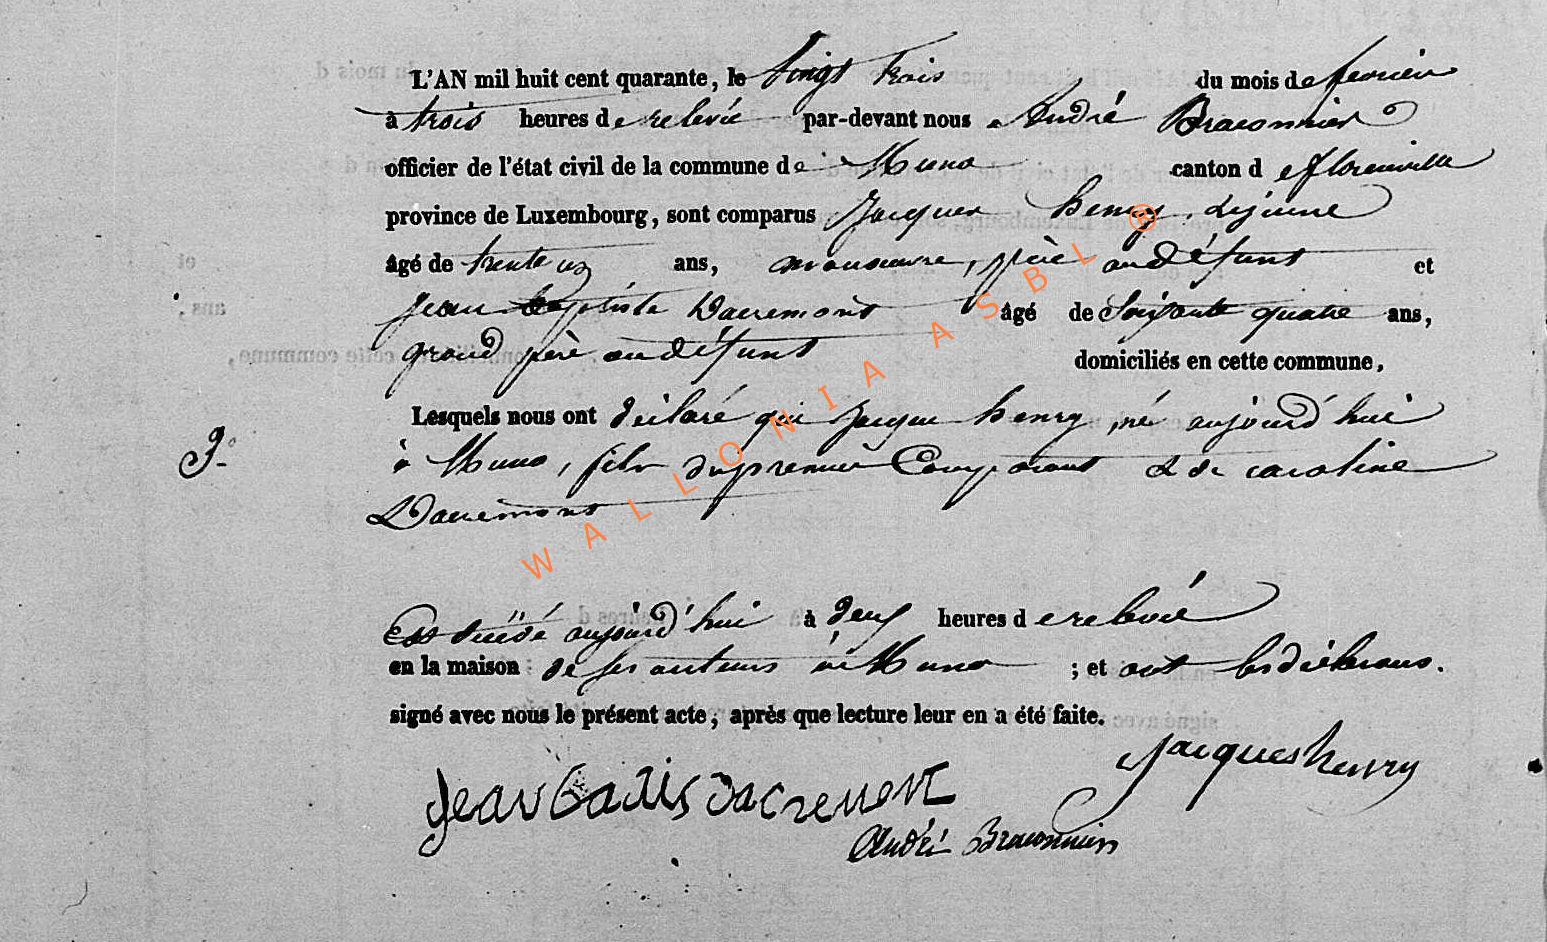 L'AN mil huit cent quarante, le vingt trois du mois de fevrier
à trois heures de relevée par-devant nous André Braconnier
officier de l'état civil de la commune de Muno canton de florenville
province de Luxembourg, sont comparus Jacques henry, Lejeune
âgé de trente un ans, manouvre, père au défunt et
Jean baptiste Dacremont âgé de Soixante quatre ans,
grand père au défunt domiciliés en cette commune,
Lesquels nous ont déclaré que Jacque henry, né aujourd'hui
3e à Muno, fils du premier Comparant & de caroline
Dacremont
Est décédé aujourd'hui à deux heures de relevée
en la maison de ses auteurs à Muno ; et ont les déclarans.
signé avec nous le présent acte, après que lecture leur en a été faite.
Jacques henry
Jean batis dacremont
André Braconnier
WALLONIA ASBL ®